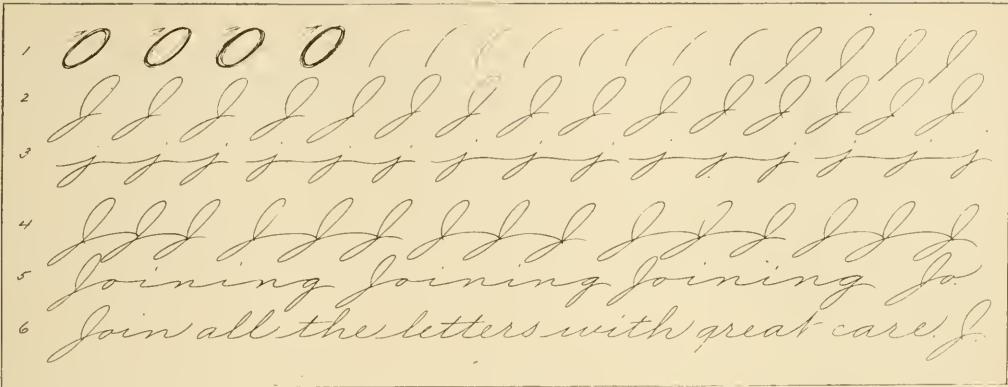 1 O O O O
2 J J J J J J J J J J J J J J
3 j j j j j j j j j j j j j j j
4 J J J J J J J J J J J J J J J
5 Joining Joining Joining Jo.
6 Join all the letters with great care. J.